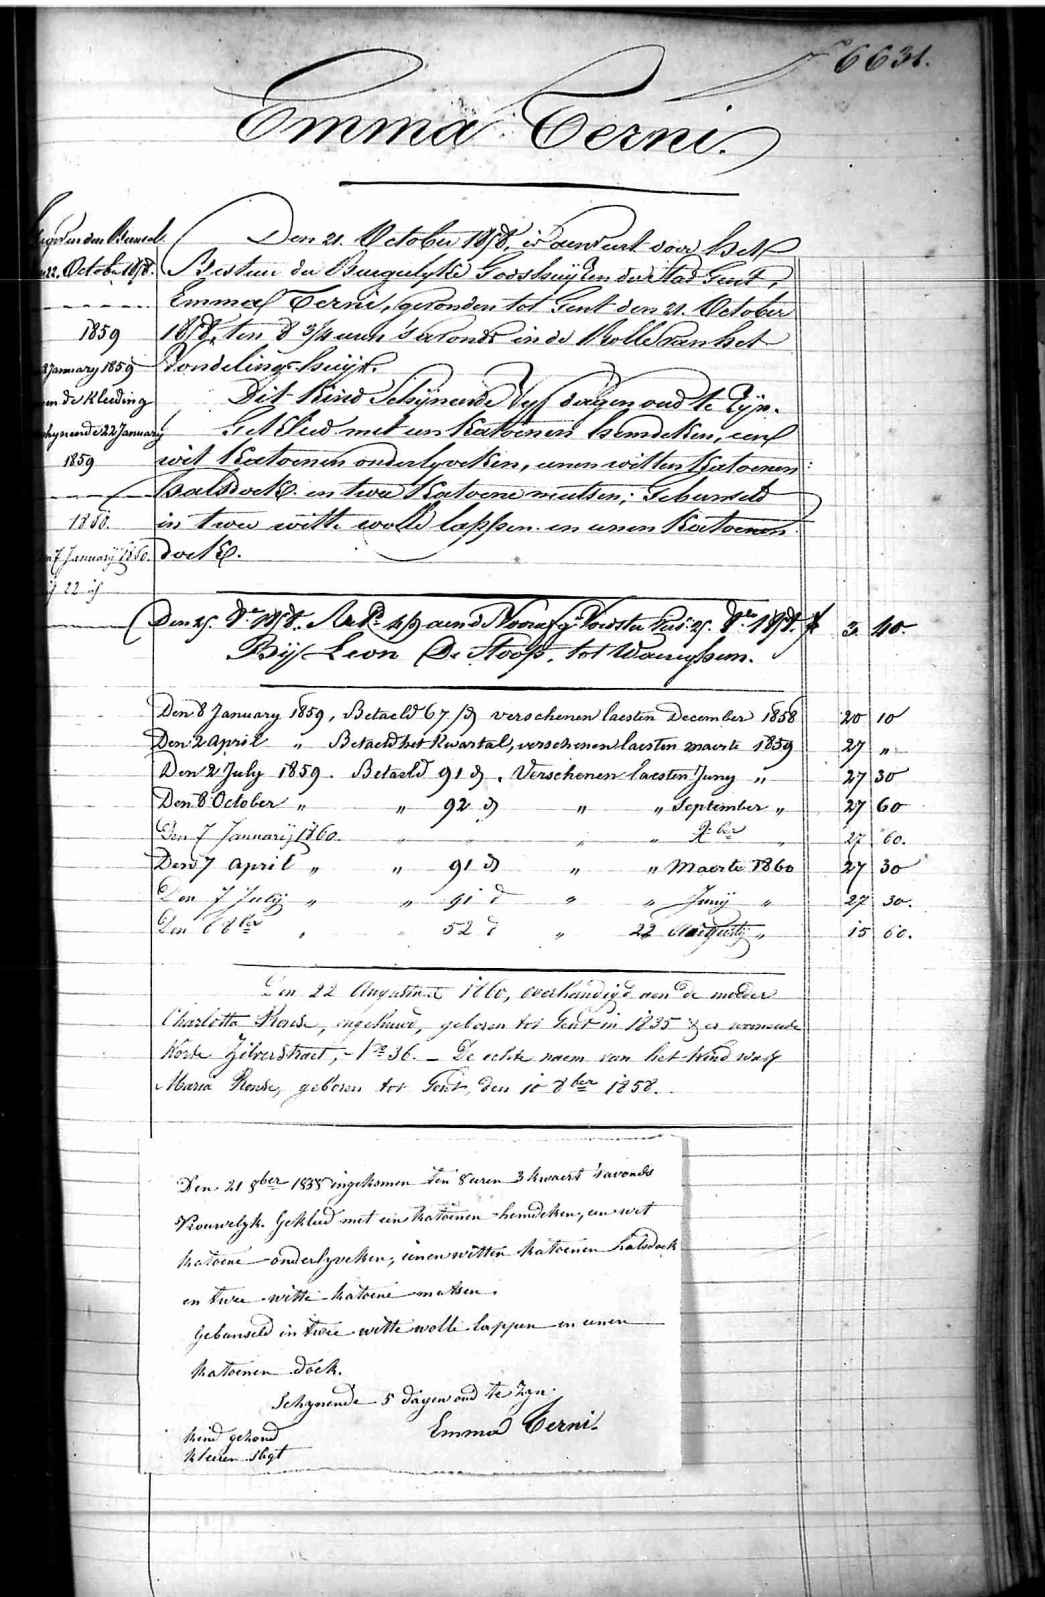 6631.
Emma Terni.
October 1858.
1859
January 1859
de Kleeding
22 January
1859
1858.
7 Januarij 1860.
22
Den 21. October 1858. is aenveert door het
Bestuer der Burgerlyke Godshuijzen der Stad Gent,
Emma Terni, gevonden tot Gent den 21. October
1858, ten 8 3/4 uren 's avonds in de Rolle van het
Vondelings-huijs.
Dit Kind Schijnende Vyf dagen oud te Zijn.
Gekleed met een Katoenen hemdeken, een
wit Katoenen onderlyveken, eenen witten Katoenen
halsdoek en twee Katoene mutsen; Gebunseld
in twee witte wolle lappen en eenen Katoenen
doek.
Den 25. 8re 1858. 25. 8re 1858. 3 40.
Bij Leon De Stoop, tot Waereghem.
Den 8 January 1859, Betaeld 67 d verschenen laesten December 1858 20 10
Den 2 April " Betaeld het Kwartal, verschenen laesten maerte 1859 27 "
Den 2 July 1859. Betaeld 91 d, Verschenen laesten Juny " 27 30
Den 8 October " " 92 d " " September " 27 60
Den 7 Januarij 1860. " " " " Xber " 27 60.
Den 7 April " " 91 d " " Maerte 1860 27 30
Den 7 Julij " " 91 d " " Junij " 27 30.
Den 6 8ber " " 52 d " 22 Augusty " 15 60.
Den 22 Augustus 1860, overhandigd aen de moeder
Charlotta Ronse, ongehuwd, geboren tot Gent in 1835 & er woonende
Korte Zilverstraet, No 36. - De echte naem van het kind was
Maria Ronse, geboren tot Gent, den 10 8ber 1858.
Den 21 8ber 1858 ingekomen ten 8 uren 3 kwaert 's avonds
Vrouwelyk. Gekleed met een katoenen hemdeken, een wit
katoene onderlyveken, eenen witten katoenen halsdoek
en twee witte katoene mutsen.
Gebunseld in twee witte wolle lappen en eenen
katoenen doek.
Schynende 5 dagen oud te Zyn.
Emma Terni.
Kind gezond
Kleeren slegt